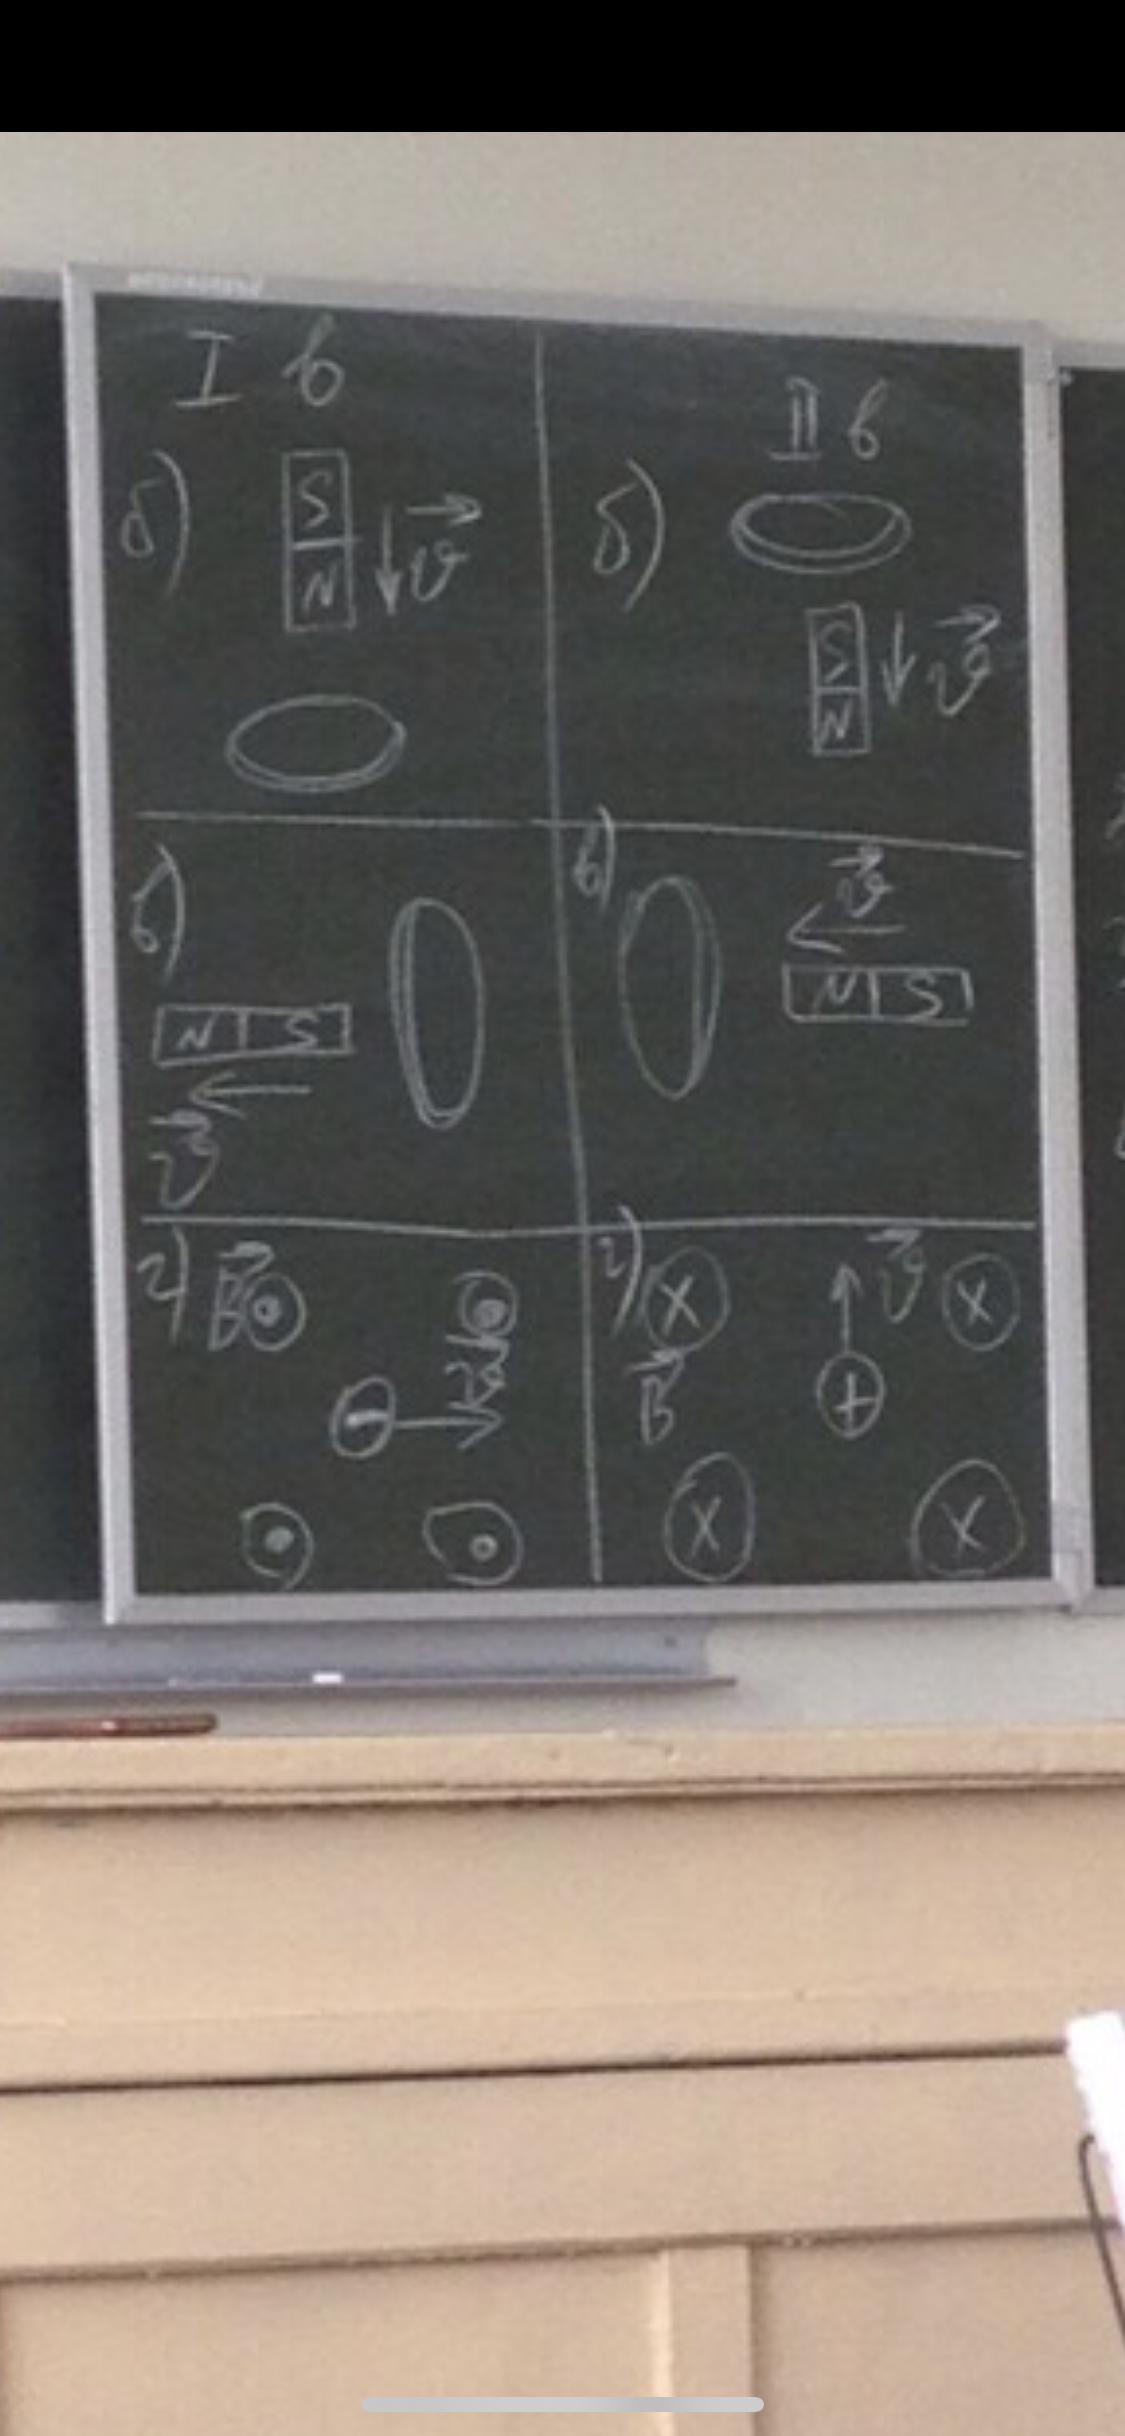 I в
б)
S
N
v⃗
в)
N S
v⃗
г) B⃗
v⃗
−
II в
б)
S
N
v⃗
в)
v⃗
N S
г) X v⃗ X
B⃗
+
X X